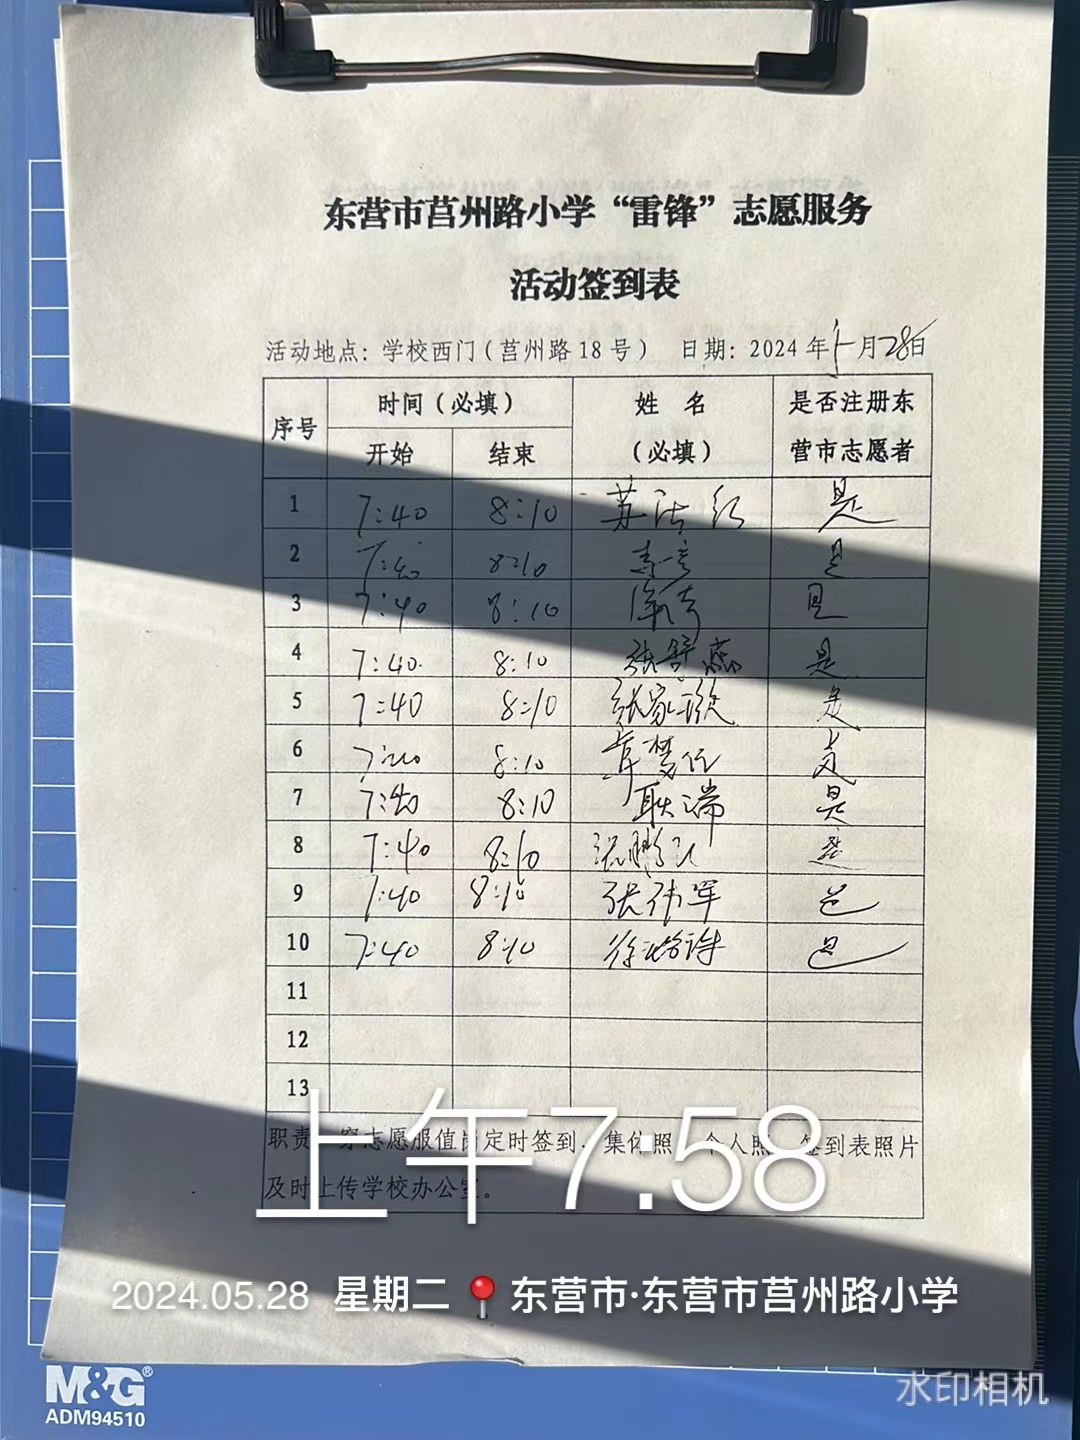 东营市莒州路小学“雷锋”志愿服务
活动签到表
活动地点：学校西门（莒州路18号） 日期：2024年5月28日
序号 时间（必填） 姓 名 是否注册东
开始 结束 （必填） 营市志愿者
1 7:40 8:10 苏 红 是
2 7:40 8:10 是
3 7:40 8:10 是
4 7:40 8:10 张 是
5 7:40 8:10 张家 是
6 7:40 8:10 梦 是
7 7:40 8:10 耿瑞 是
8 7:40 8:10 鹏 是
9 7:40 8:10 张伟军 是
10 7:40 8:10 徐 是
11
12
13
职责 穿志愿服值岗定时签到 集体照 个人照 签到表照片
及时上传学校办公室。
上午7:58
2024.05.28 星期二 东营市·东营市莒州路小学
M&G®
ADM94510
水印相机